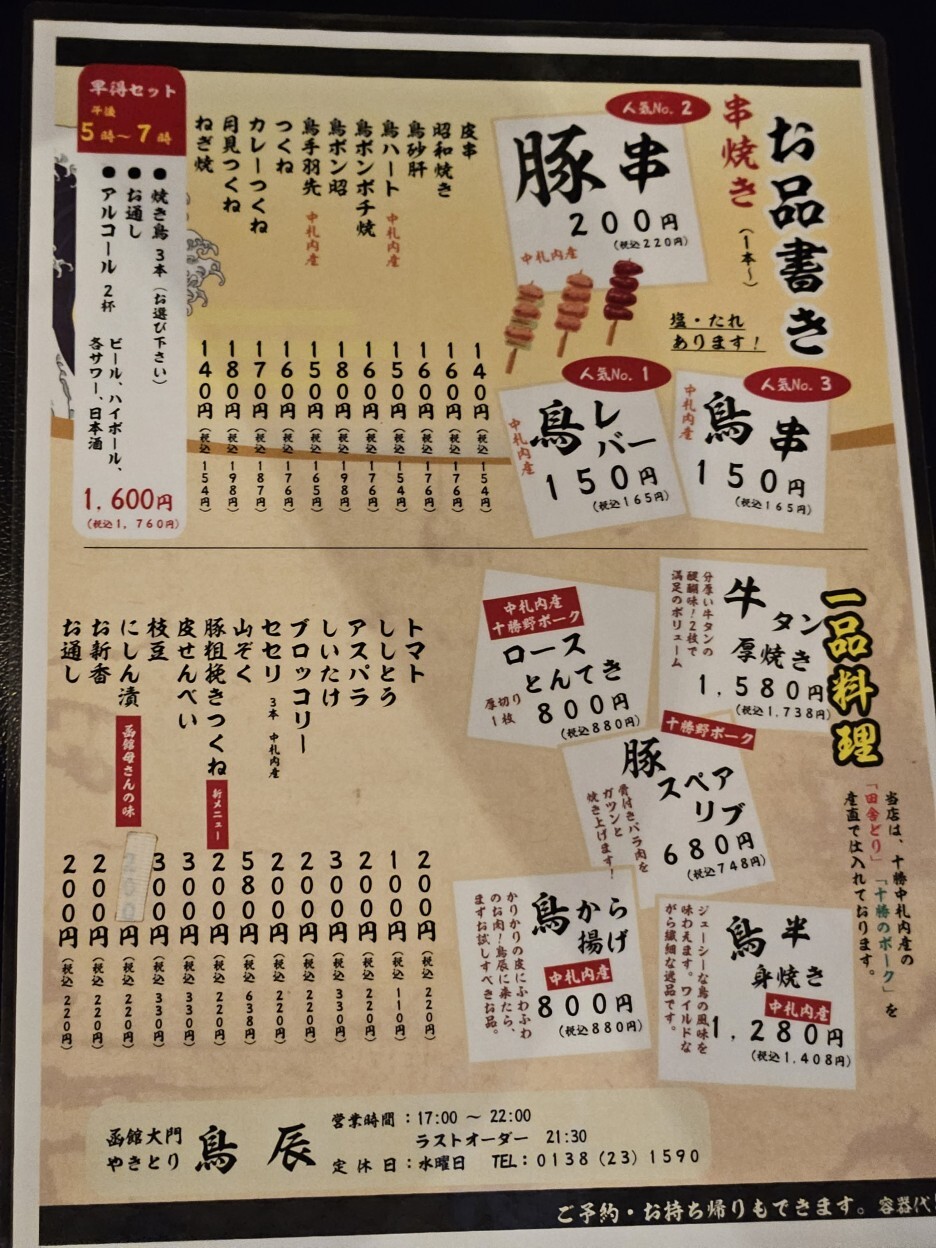 お品書き
串焼き
(1本~)
塩・たれ
あります!
人気No. 2
豚串
200円
(税込220円)
中札内産
人気No. 3
中札内産
鳥串
150円
(税込165円)
人気No. 1
中札内産
鳥レバー
150円
(税込165円)
皮串 140円(税込154円)
昭和焼き 160円(税込176円)
鳥砂肝 160円(税込176円)
鳥ハート 中札内産 150円(税込154円)
鳥ボンボチ焼 160円(税込176円)
鳥ボン昭 180円(税込198円)
鳥手羽先 中札内産 150円(税込165円)
つくね 160円(税込176円)
カレーつくね 170円(税込187円)
月見つくね 180円(税込198円)
ねぎ焼 140円(税込154円)
早得セット
午後
5時~7時
●焼き鳥 3本(お選び下さい)
●お通し
●アルコール 2杯
ビール、ハイボール、
各サワー、日本酒
1,600円
(税込1,760円)
一品料理
当店は、十勝中札内産の
「田舎どり」「十勝のポーク」を
産直で仕入れております。
牛タン
厚焼き
分厚い牛タンの
醍醐味!2枚で
満足のボリューム
1,580円
(税込1,738円)
中札内産
十勝野ポーク
ロース
とんてき
厚切り
1枚
800円
(税込880円)
十勝野ポーク
豚
スペア
リブ
骨付きバラ肉を
ガツンと
焼き上げます!
680円
(税込748円)
鳥半
身焼き
中札内産
ジューシーな鳥の風味を
味わえます。ワイルドな
がら繊細な逸品です。
1,280円
(税込1,408円)
鳥から
揚げ
中札内産
かりかりの皮にふわふわ
のお肉!鳥辰に来たら、
まずお試しすべきお品。
800円
(税込880円)
トマト 200円(税込220円)
ししとう 100円(税込110円)
アスパラ 200円(税込220円)
しいたけ 300円(税込330円)
ブロッコリー 200円(税込220円)
セセリ 3本 中札内産 200円(税込220円)
山ぞく 580円(税込638円)
豚粗挽きつくね 新メニュー 200円(税込220円)
皮せんべい 300円(税込330円)
枝豆 300円(税込330円)
にしん漬 函館母さんの味 円(税込220円)
お新香 200円(税込220円)
お通し 200円(税込220円)
函館大門
やきとり
鳥辰
営業時間:17:00 ~ 22:00
ラストオーダー 21:30
定休日:水曜日 TEL:0138(23)1590
ご予約・お持ち帰りもできます。容器代